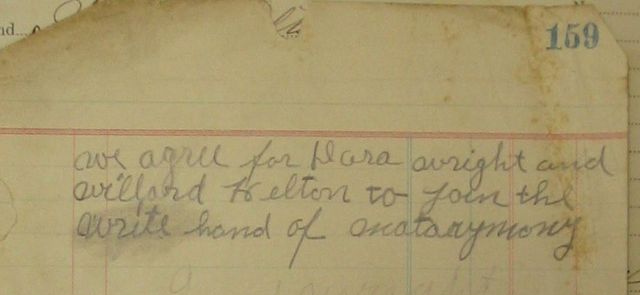 159
nd...
we agree for Dora wright and
willard Helton to join the
write hand of matarymony